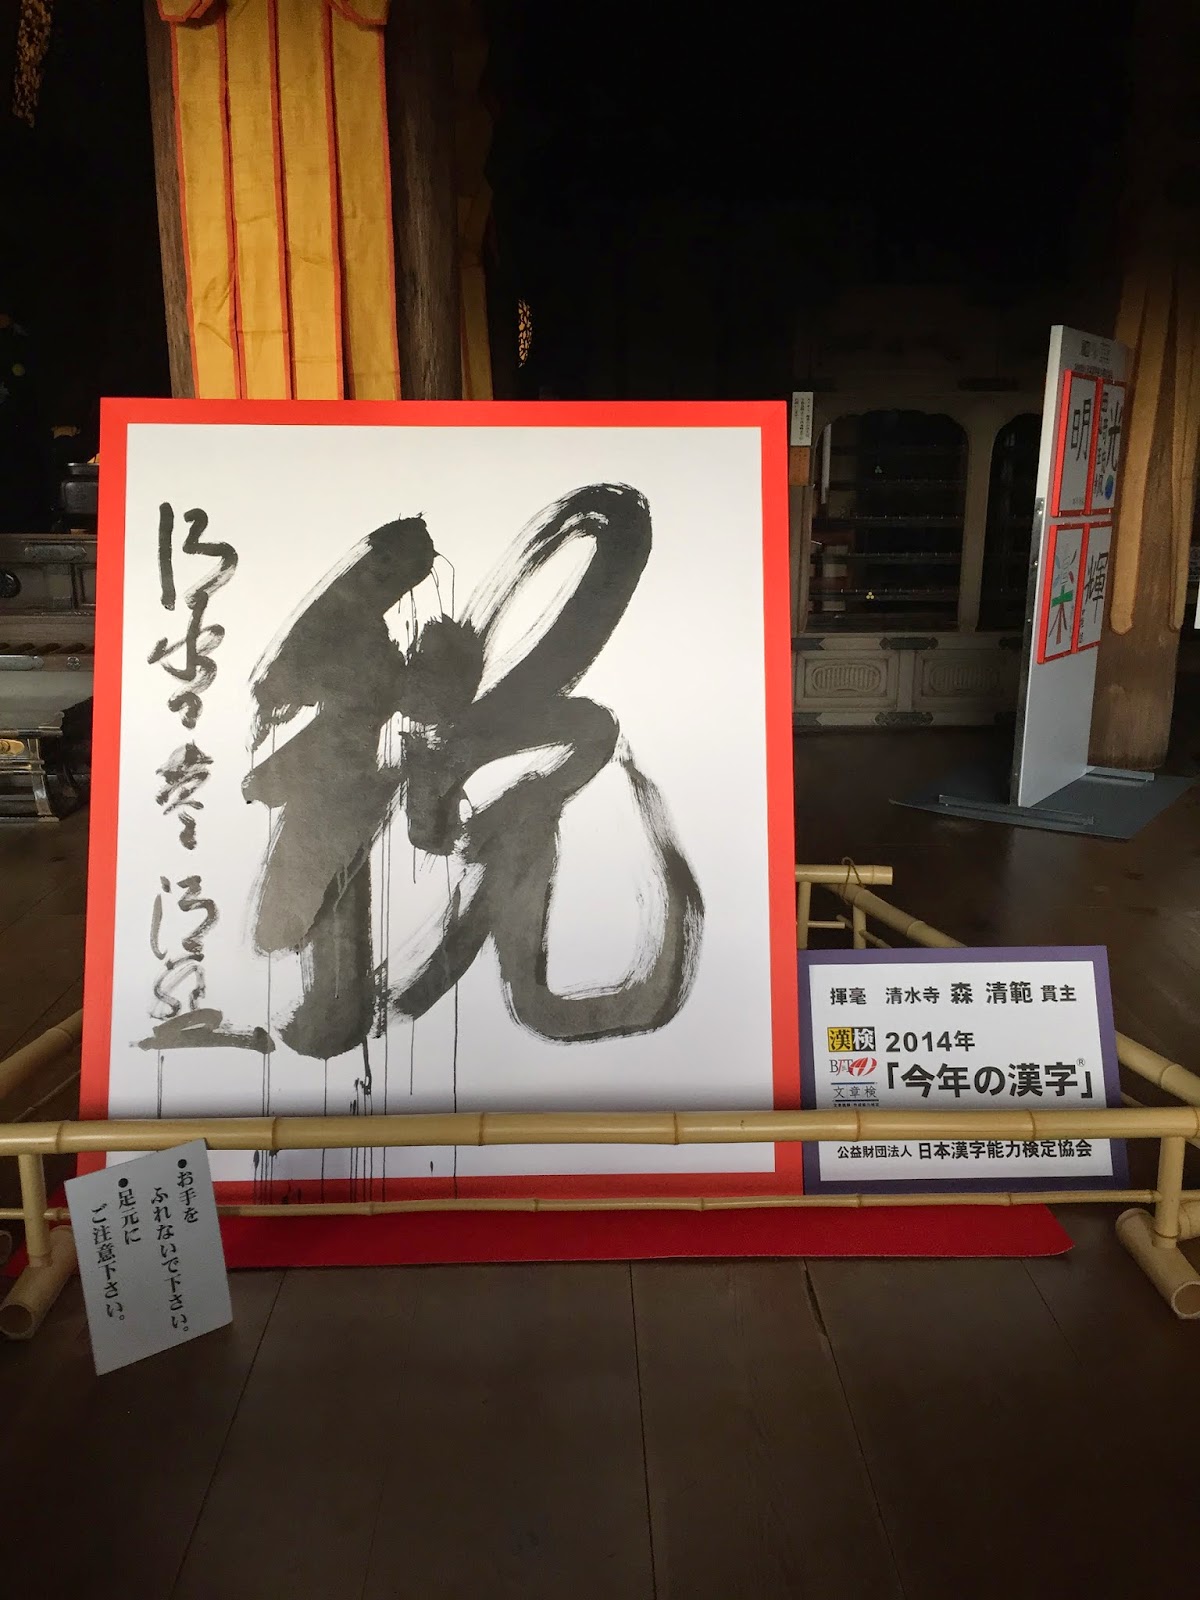 税
清水寺
清範
揮毫 清水寺 森 清範 貫主
漢検
BJT
文章検
2014年
「今年の漢字」®
公益財団法人 日本漢字能力検定協会
●お手を
ふれないで下さい。
●足元に
ご注意下さい。
明
光
輝